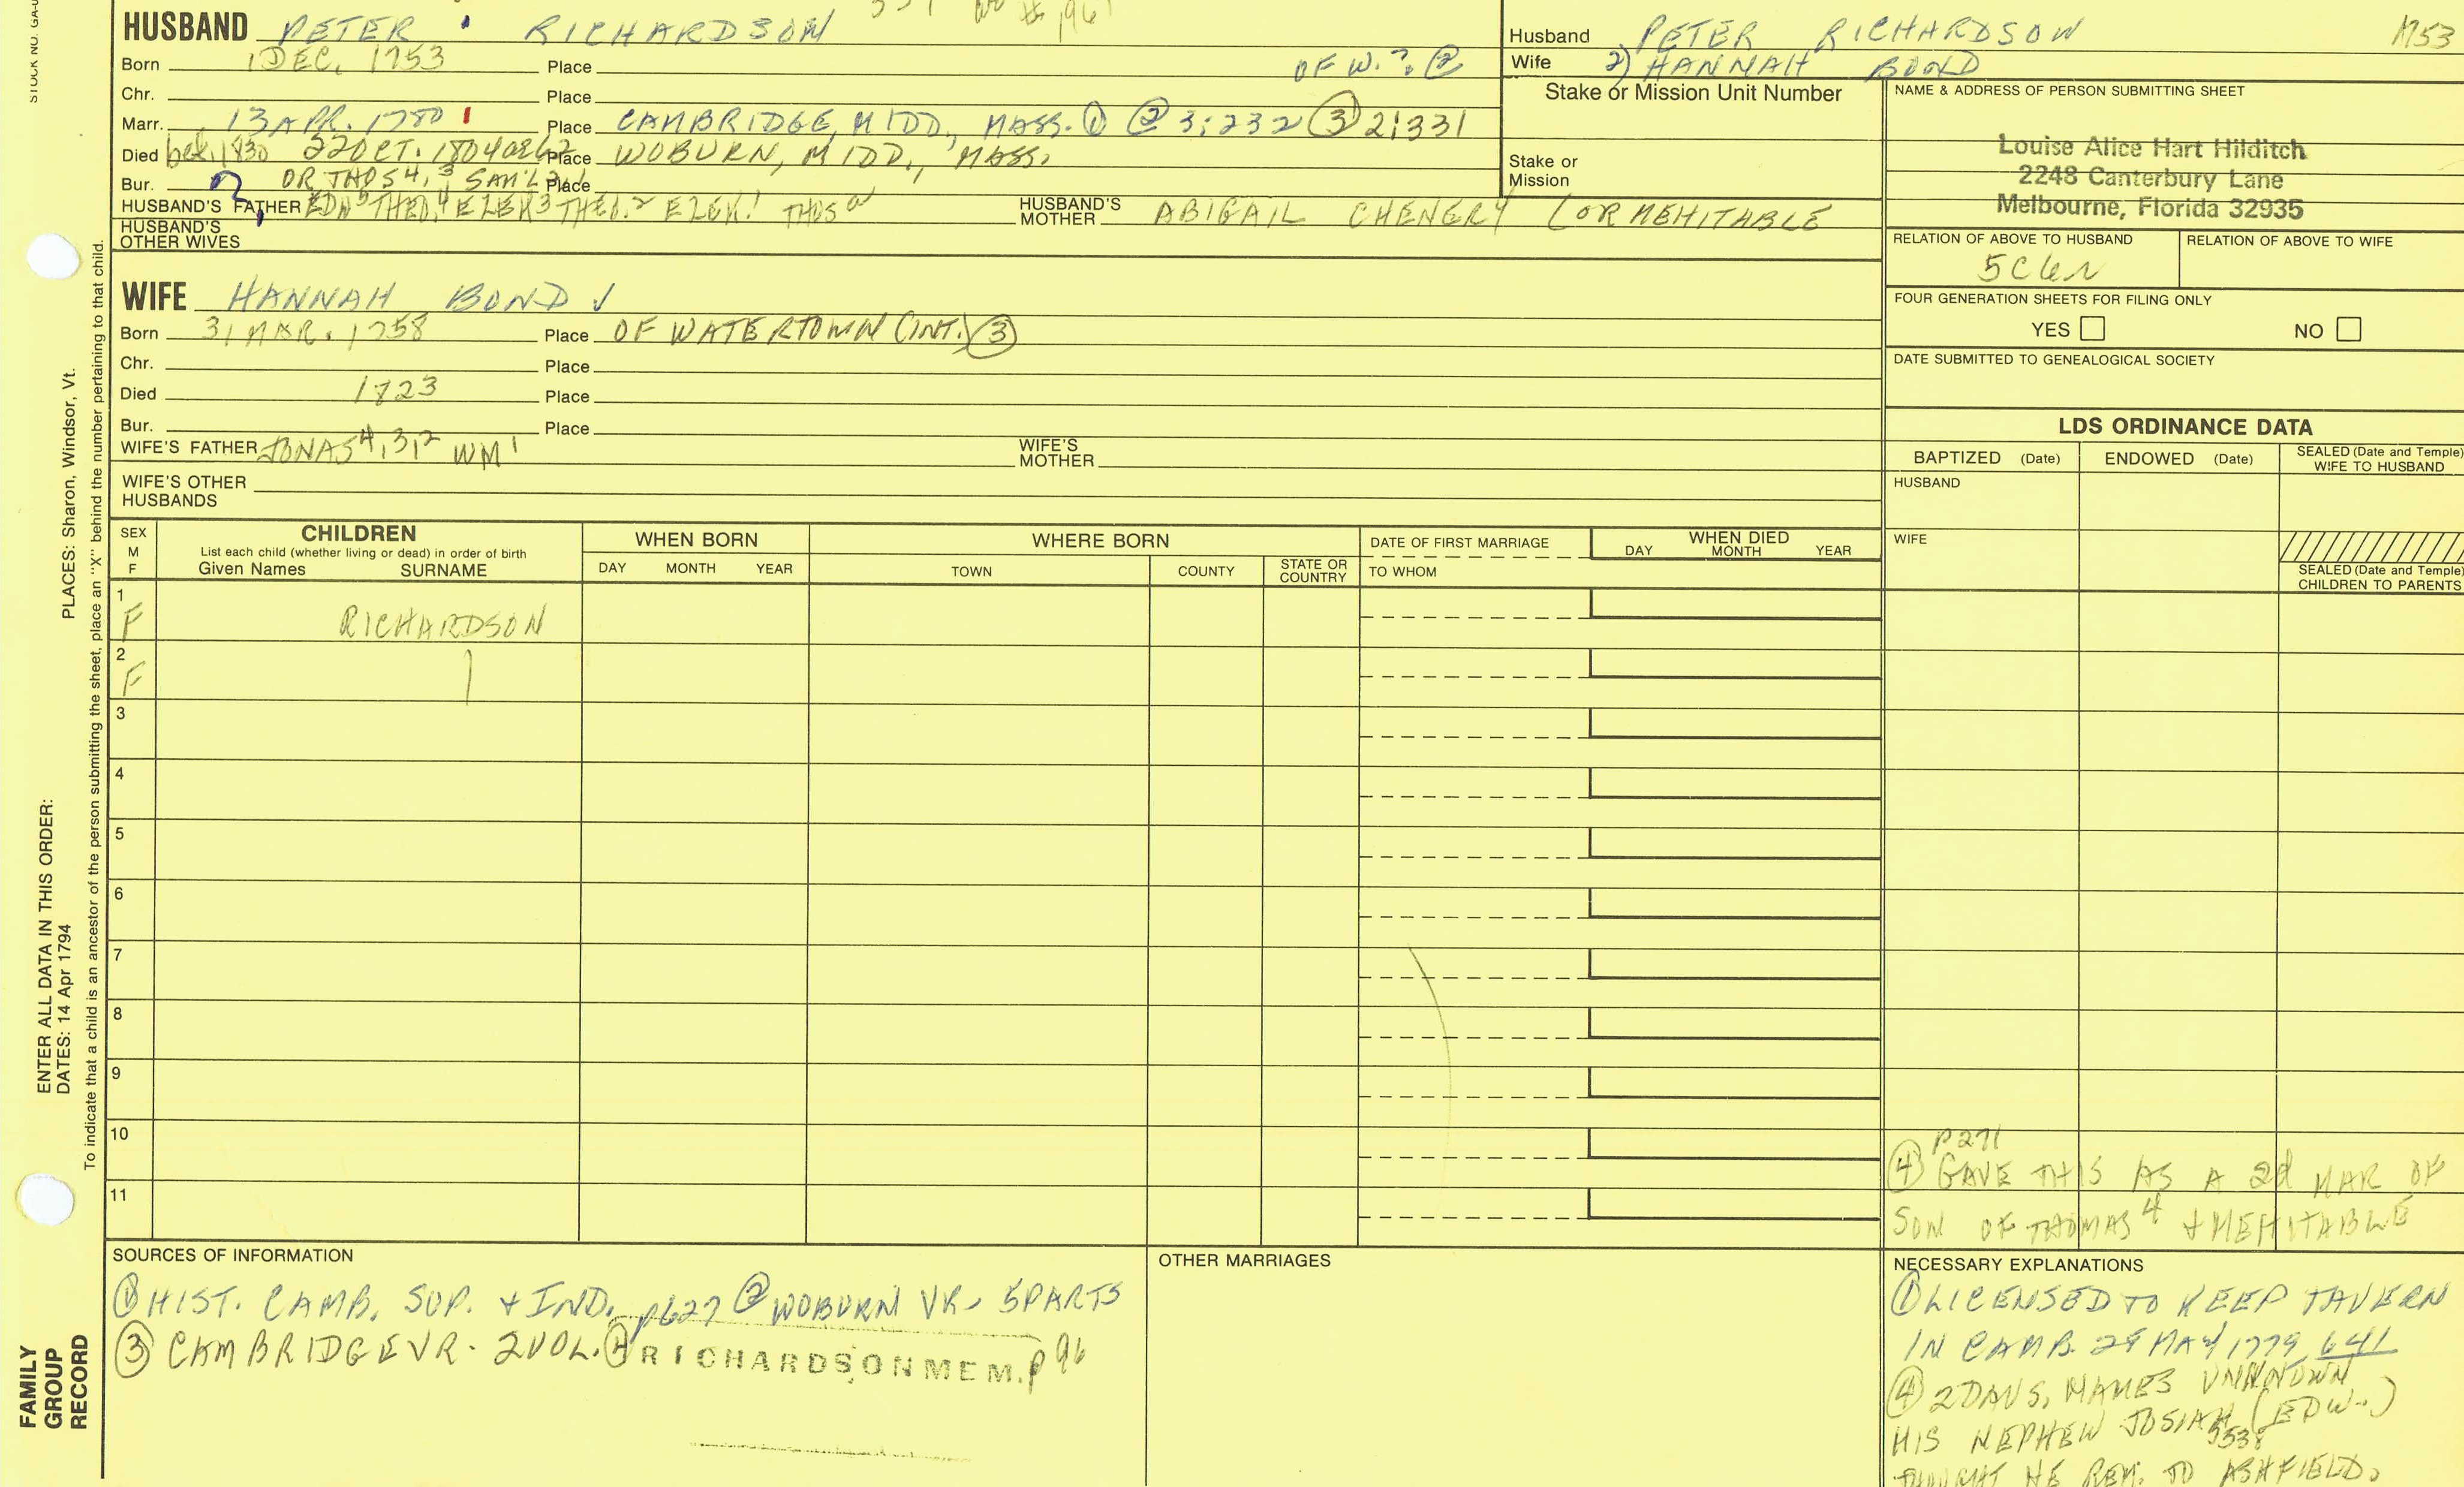 HUSBAND PETER RICHARDSON
Born 1 DEC. 1753 Place OF W.? ②
Chr. Place
Marr. 13 APR. 1780 Place CAMBRIDGE, MIDD., MASS. ① ② 3:232 ③ 2:331
Died bef. 1830 22 OCT. 1804 Place WOBURN, MIDD., MASS.
Bur. OR THOS 4, 3 SAM'L 2, 1 Place
HUSBAND'S FATHER EDW 5 THEO. 4 EZEK 3 THEO. 2 EZEK. 1 THOS
HUSBAND'S MOTHER ABIGAIL CHENERY (OR MEHITABLE
HUSBAND'S OTHER WIVES
WIFE HANNAH BOND
Born 31 MAR. 1758 Place OF WATERTOWN (INT.) ③
Chr. Place
Died 1823 Place
Bur. Place
WIFE'S FATHER JONAS 4, 3, 2 WM 1
WIFE'S MOTHER
WIFE'S OTHER HUSBANDS
Husband PETER RICHARDSON 1753
Wife 2) HANNAH BOND
Stake or Mission Unit Number
Stake or Mission
NAME & ADDRESS OF PERSON SUBMITTING SHEET
Louise Alice Hart Hilditch
2248 Canterbury Lane
Melbourne, Florida 32935
RELATION OF ABOVE TO HUSBAND RELATION OF ABOVE TO WIFE
5C6R
FOUR GENERATION SHEETS FOR FILING ONLY
YES NO
DATE SUBMITTED TO GENEALOGICAL SOCIETY
LDS ORDINANCE DATA
BAPTIZED (Date) ENDOWED (Date) SEALED (Date and Temple) WIFE TO HUSBAND
HUSBAND
WIFE
SEALED (Date and Temple) CHILDREN TO PARENTS
SEX M F
CHILDREN
List each child (whether living or dead) in order of birth
Given Names SURNAME
WHEN BORN
DAY MONTH YEAR
WHERE BORN
TOWN COUNTY STATE OR COUNTRY
DATE OF FIRST MARRIAGE
TO WHOM
WHEN DIED
DAY MONTH YEAR
1 F RICHARDSON
2 F
3
4
5
6
7
8
9
10
11
P271
④ GAVE THIS AS A 2d MAR OF
SON OF THOMAS 4 + MEHITABLE
SOURCES OF INFORMATION
① HIST. CAMB. SUP. + IND. p627 ② WOBURN VR. 5 PARTS
③ CAMBRIDGE VR. 2 VOL. ④ RICHARDSON MEM. p96
OTHER MARRIAGES
NECESSARY EXPLANATIONS
① LICENSED TO KEEP TAVERN
IN CAMB. 29 MAY 1779 641
④ 2 DAUS, NAMES UNKNOWN
HIS NEPHEW JOSIAH (EDW.)
5538
THOUGHT HE REM. TO ASHFIELD.
STOCK NO.
PLACES: Sharon, Windsor, Vt.
ENTER ALL DATA IN THIS ORDER:
DATES: 14 Apr 1794
To indicate that a child is an ancestor of the person submitting the sheet, place an "X" behind the number pertaining to that child.
FAMILY
GROUP
RECORD